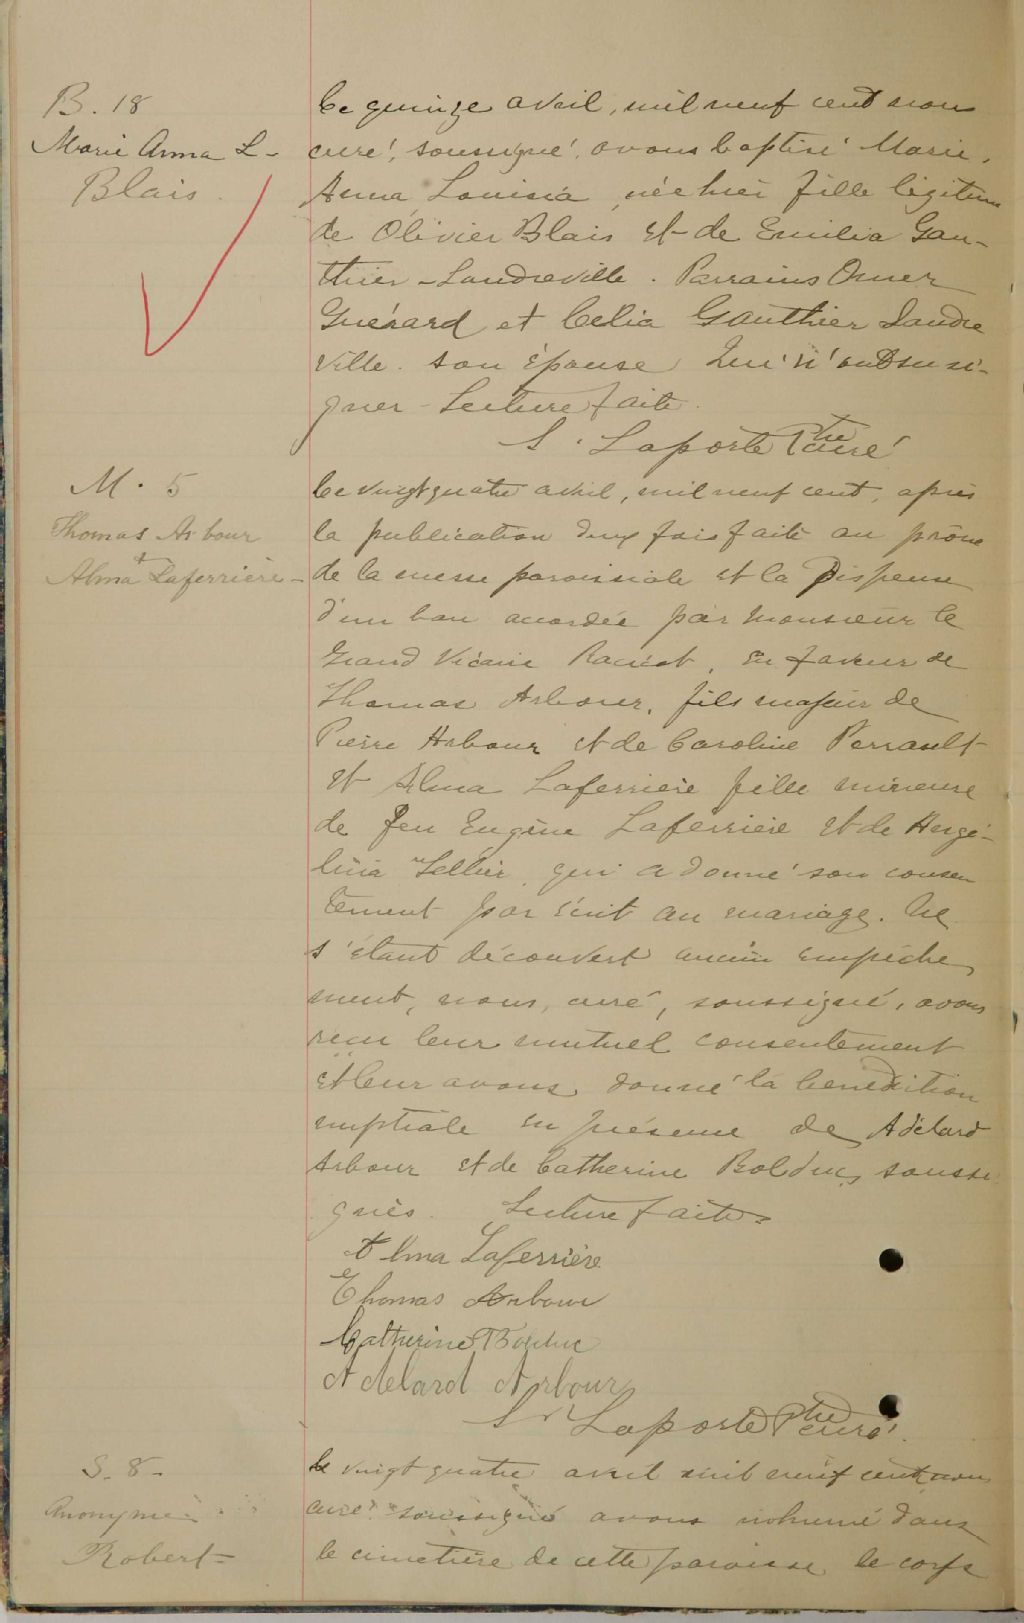 B. 18
Marie Anna L-
Blais
Ce quinze avril, mil neuf cent nous
curé, soussigné, avons baptisé Marie,
Anna, Louisia, née hier fille légitime
de Olivier Blais et de Emilia Gau-
thier-Landreville. Parrains Omer
Guérard et Célia Gauthier Landre
ville son épouse Qui n'ont su si-
gner Lecture faite.
S. Laporte Ptre curé
M. 5
Thomas Arbour
+
Alma Laferrière-
Ce vingt quatre avril, mil neuf cent, après
la publication deux fois faite au prône
de la messe paroissiale et la Dispense
d'un ban accordée par Monsieur le
Grand Vicaire en faveur de
Thomas Arbour, fils majeur de
Pierre Arbour et de Caroline Perrault
et Alma Laferriere fille mineure
de feu Eugène Laferrière et de Hergé-
lina Tellier, qui a donné son consen
tement par écrit au mariage. Ne
s'étant découvert aucun empêche
ment, nous, curé, soussigné, avons
reçu leur mutuel consentement
et leur avons donné la bénédition
nuptiale en présence de Adélard
Arbour et de Catherine Bolduc, soussi
gnés. Lecture faite.
Alma Laferrière
Thomas Arbour
Catherine Bolduc
Adelard Arbour
S. Laporte Ptre curé.
S. 8-
Anonyme
Robert-
Le vingt quatre avril mil neuf cent, nous
curé soussigné avons inhumé dans
le cimetière de cette paroisse, le corps